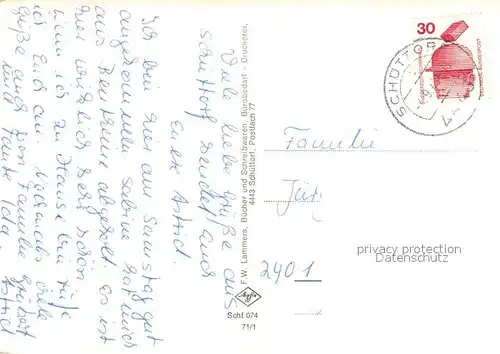 Viele liebe Grüße aus
Schüttorf sendet auch
Eure Astrid
Ich bin hier am Samstag gut
angekommen. Sabine hat mich
aus Bentheim abgeholt. Es ist
hier wirklich sehr schön.
Wenn ich zu Hause bin rufe
ich Euch an. Nochmals viele
Grüße auch von Familie
und Tante Ida. Astrid
F.W. Lammers, Bücher und Schreibwaren, Bürobedarf - Druckerei,
4443 Schüttorf, Postfach 77
Agfa
Schf 074
71/1
30
SCHÜTTORF
Familie
2401
privacy protection
Datenschutz